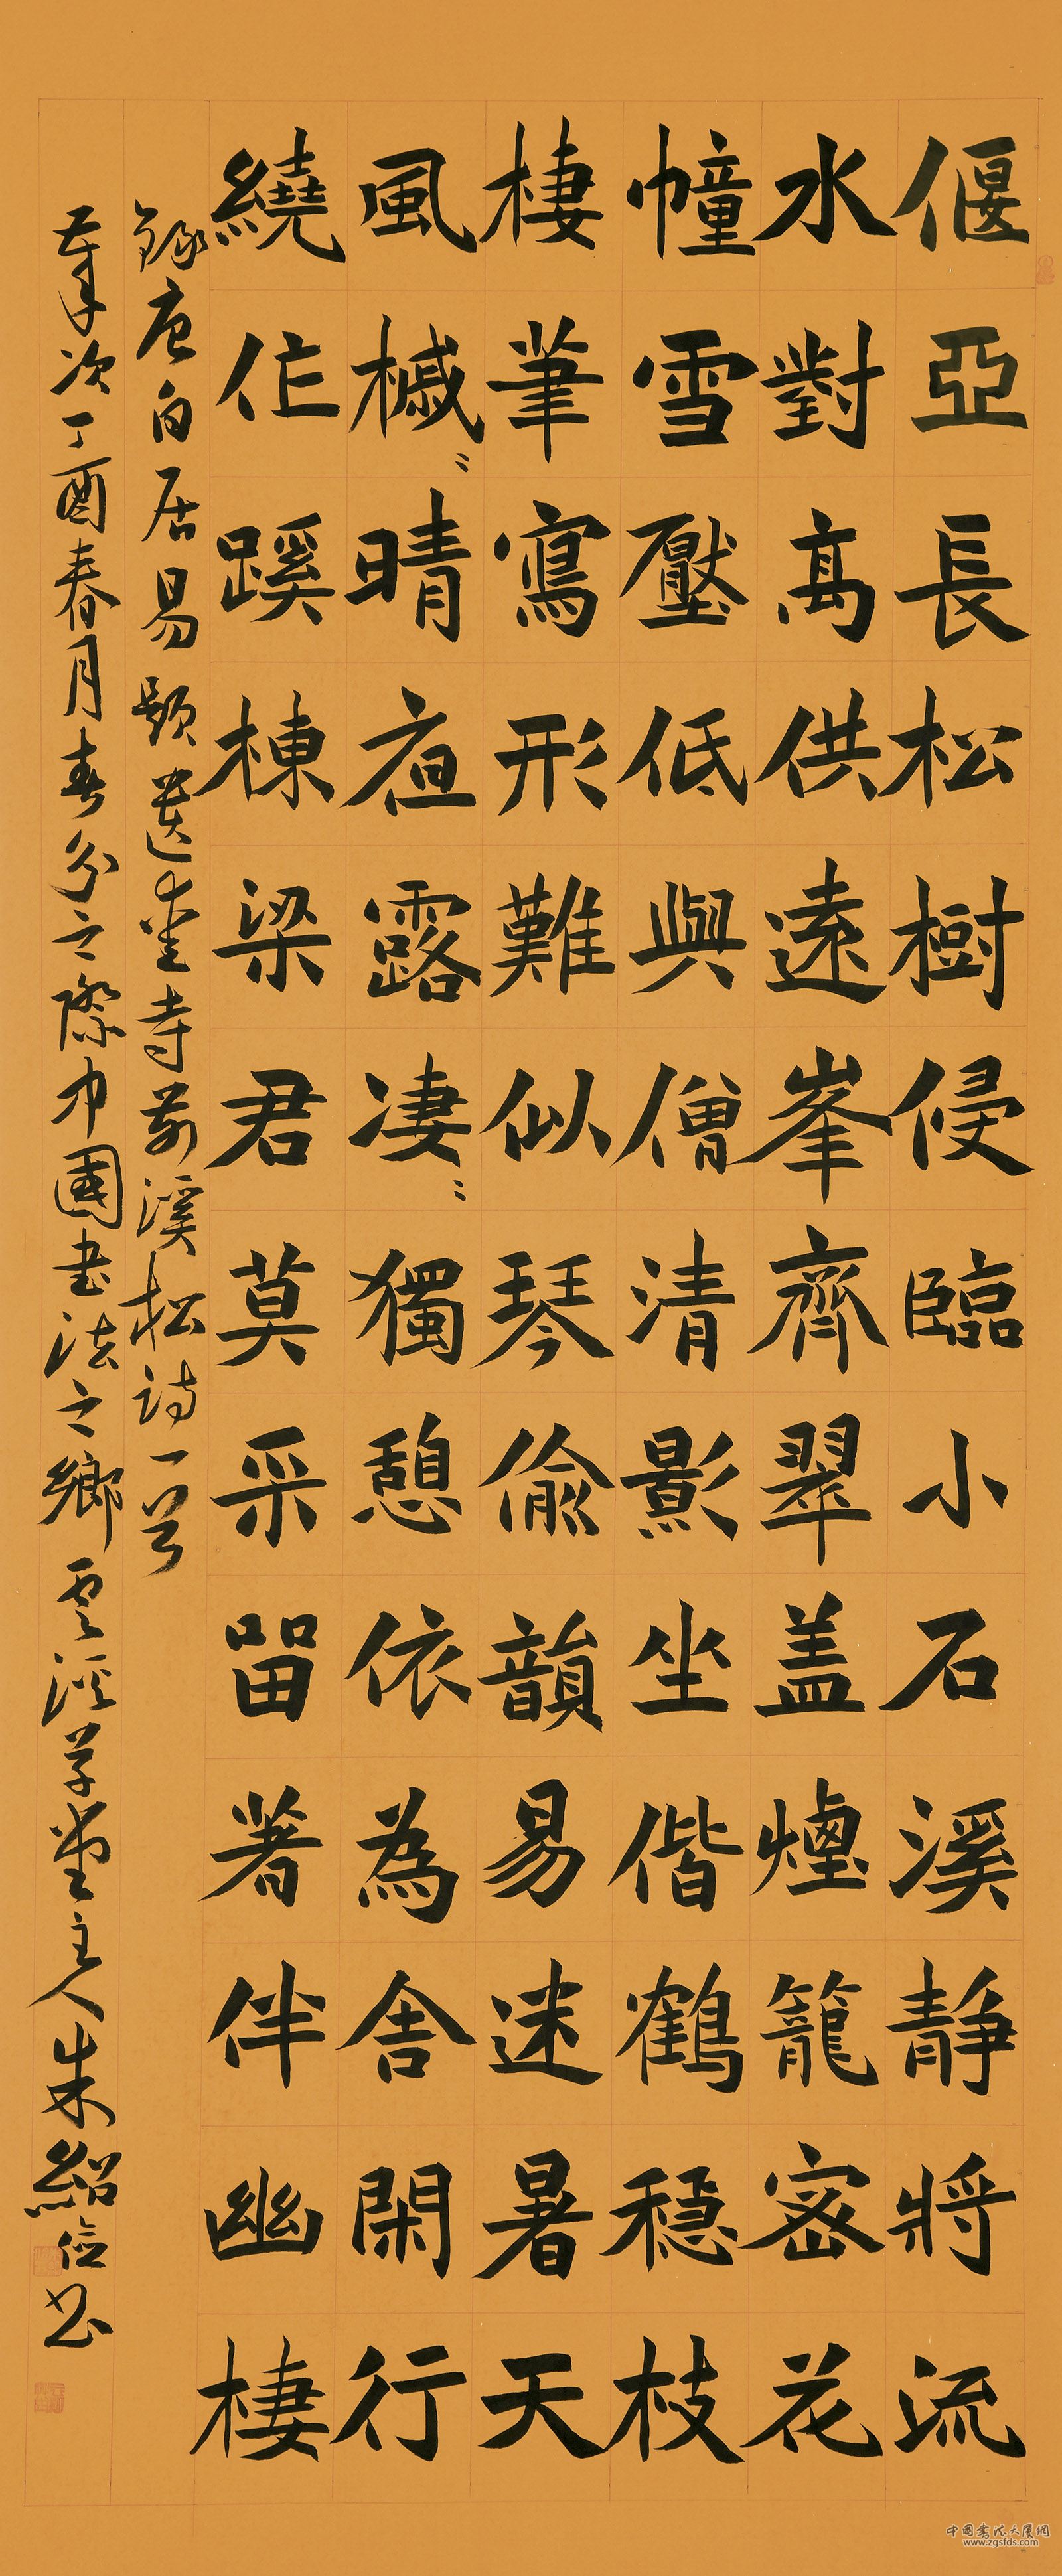 偃亞長松樹侵臨小石溪靜將流
水對高供遠峯齊翠盖煙籠密花
幢雪壓低與僧清影坐偕鶴穩枝
棲筆寫形難似琴偷韻易迷暑天
風槭〻晴夜露凄〻獨憩依為舍閑行
繞作蹊棟梁君莫采留著伴幽棲
錄唐白居易題遺愛寺前溪松詩一首
本年次丁酉春月春分之際中國書法之鄉雲溪草堂主人朱紹俭书
中国书法大厦网
www.zgsfds.com